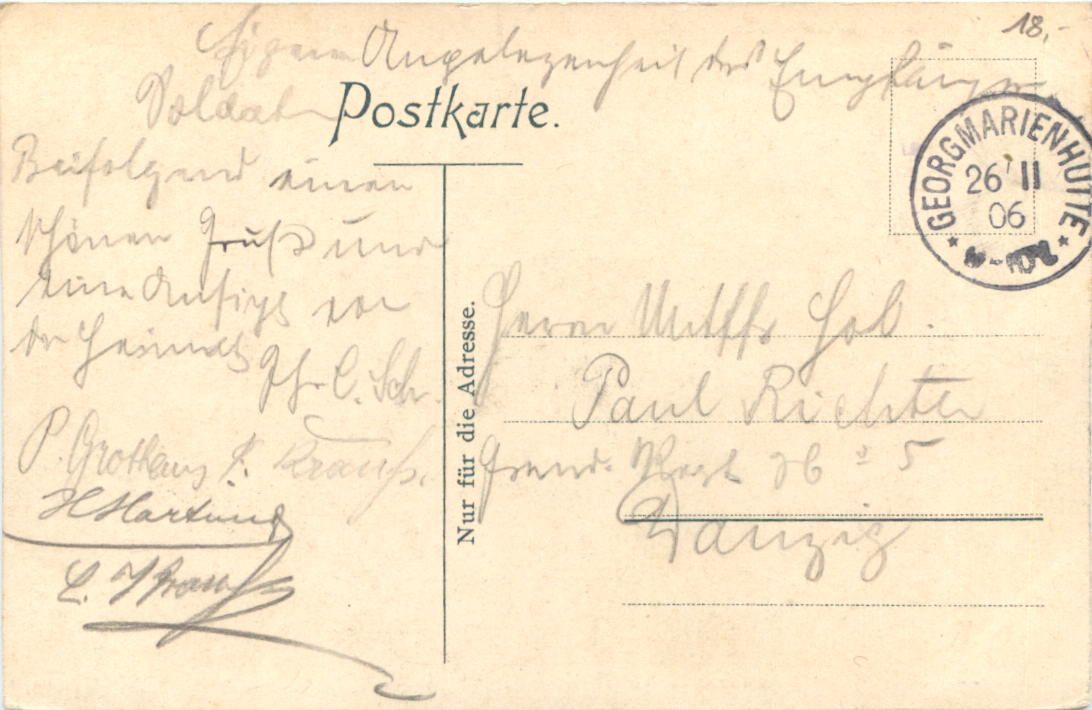 18,-
Eigene Angelegenheit des Empfängers
Soldat
Postkarte.
Beifolgend einen
schönen Gruß und
eine Ansicht von
der Heimat
C. Sch.
P. Grothaus
F. Krauß.
H Hartung
L.
Nur für die Adresse.
GEORGMARIENHÜTTE
26 11
06
Herrn
Paul Richter
Grend. Regt. No 5
Danzig